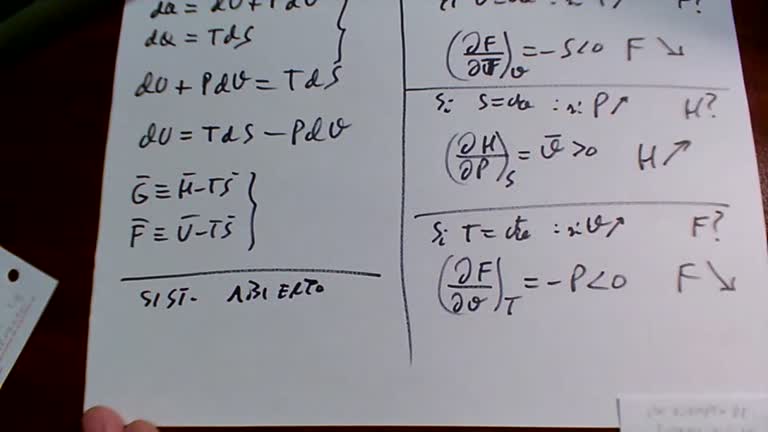 dQ = dU + PdV
dQ = TdS
dU + PdV = TdS
dU = TdS - PdV
G̅ ≡ H̅ - TS̅
F̅ ≡ U̅ - TS̅
SIST. ABIERTO
(∂F/∂T)v = -S<0 F ↘
Si S=cte : si P↗ H?
(∂H/∂P)s = v̅ >0 H ↗
Si T=cte : si v↗ F?
(∂F/∂v)T = -P<0 F ↘